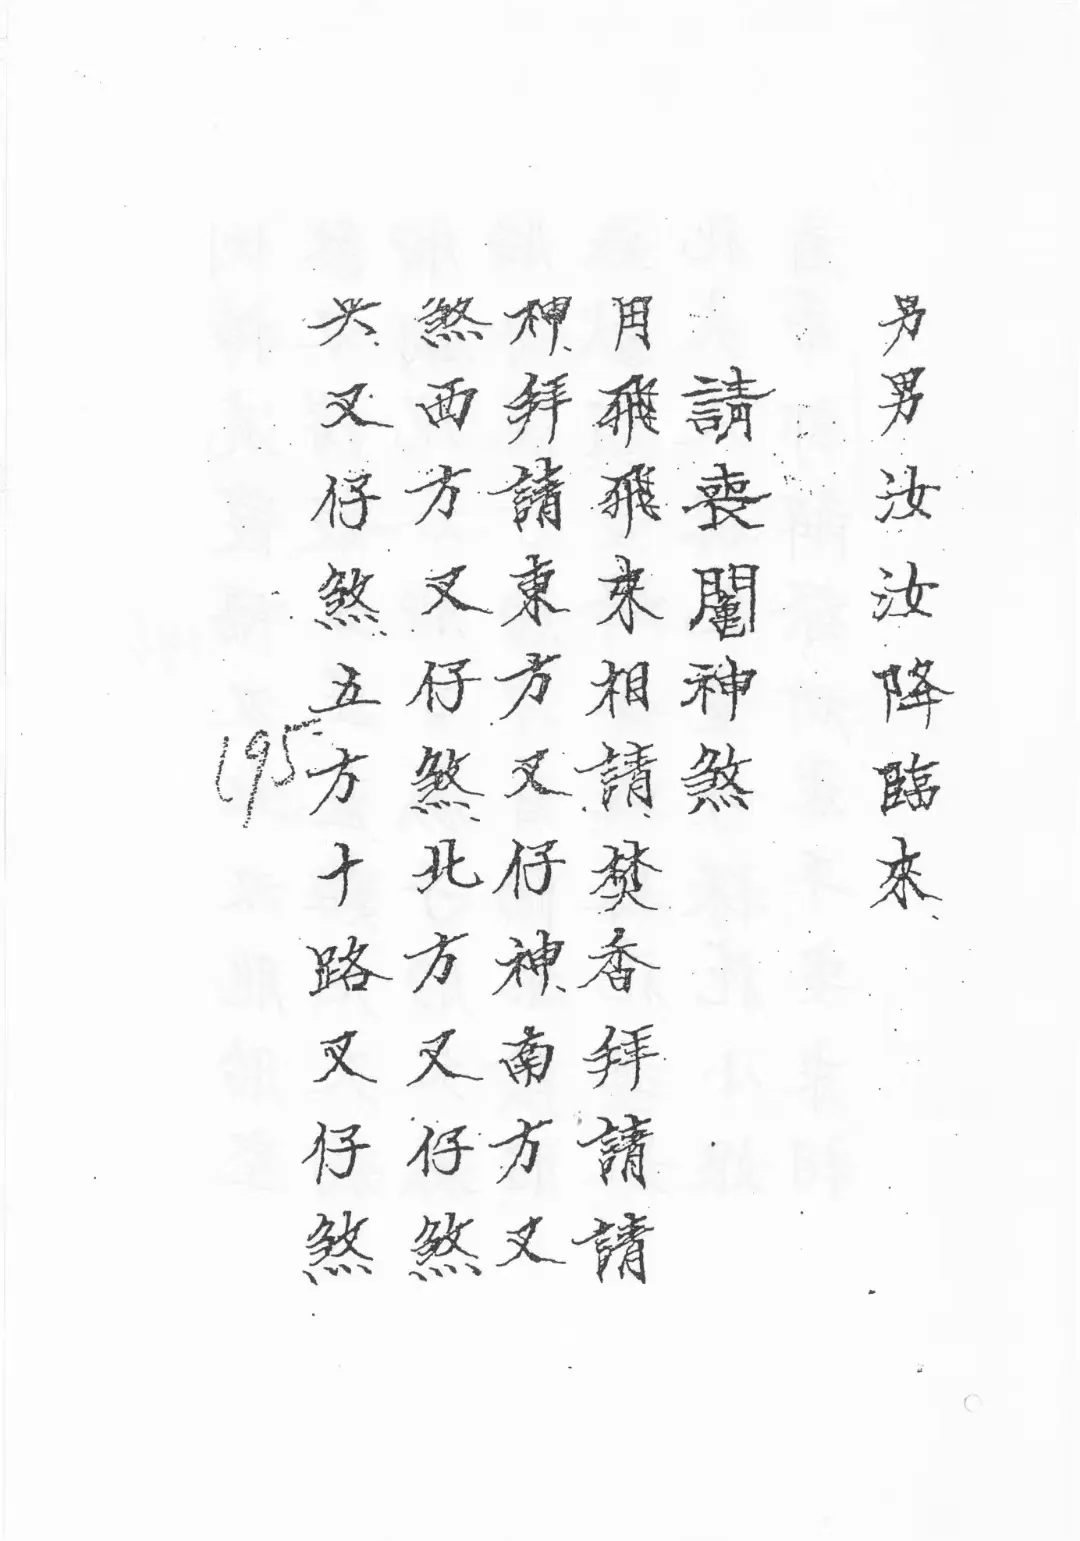 男男汝汝降臨來
請喪神煞
用飛飛來相請焚香拜請請
神拜請東方又仔神南方又
煞西方又仔煞北方又仔煞
央又仔煞五方十路又仔煞
195